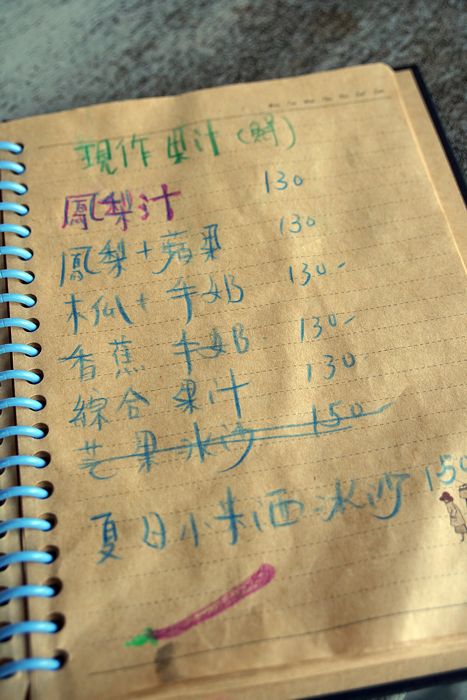 現作果汁(鮮)
鳳梨汁 130
鳳梨+蘋果 130
木瓜+牛奶 130-
香蕉 牛奶 130-
綜合果汁 130
芒果冰沙 150
夏日小米酒冰沙 150